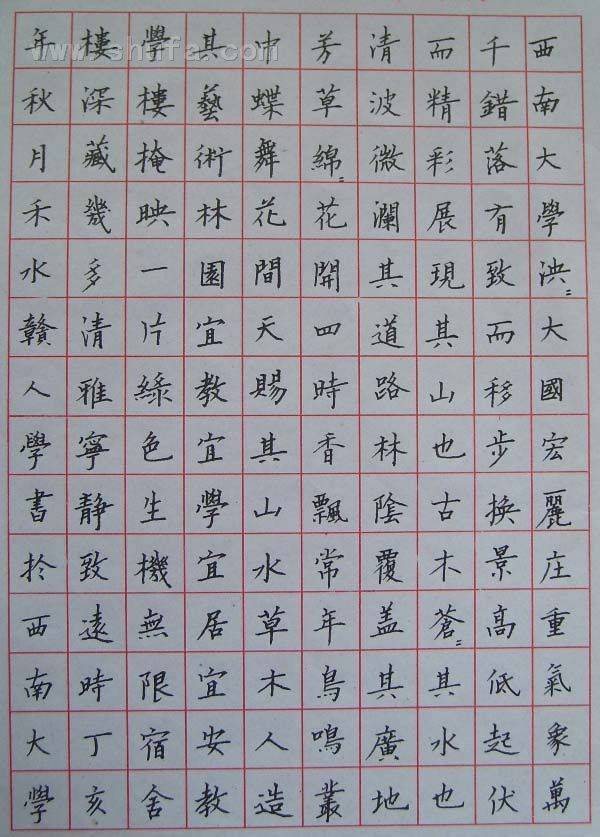 西南大學泱〻大國宏麗庄重氣象萬
千錯落有致而移步換景高低起伏
而精彩展現其山也古木蒼〻其水也
清波微瀾其道路林陰覆盖其廣地
芳草綿〻花開四時香飄常年鳥鳴叢
中蝶舞花間天賜其山水草木人造
其藝術林園宜教宜學宜居宜安教
學樓掩映一片綠色生機無限宿舍
樓深藏幾多清雅寧靜致遠時丁亥
年秋月禾水贛人學書於西南大學